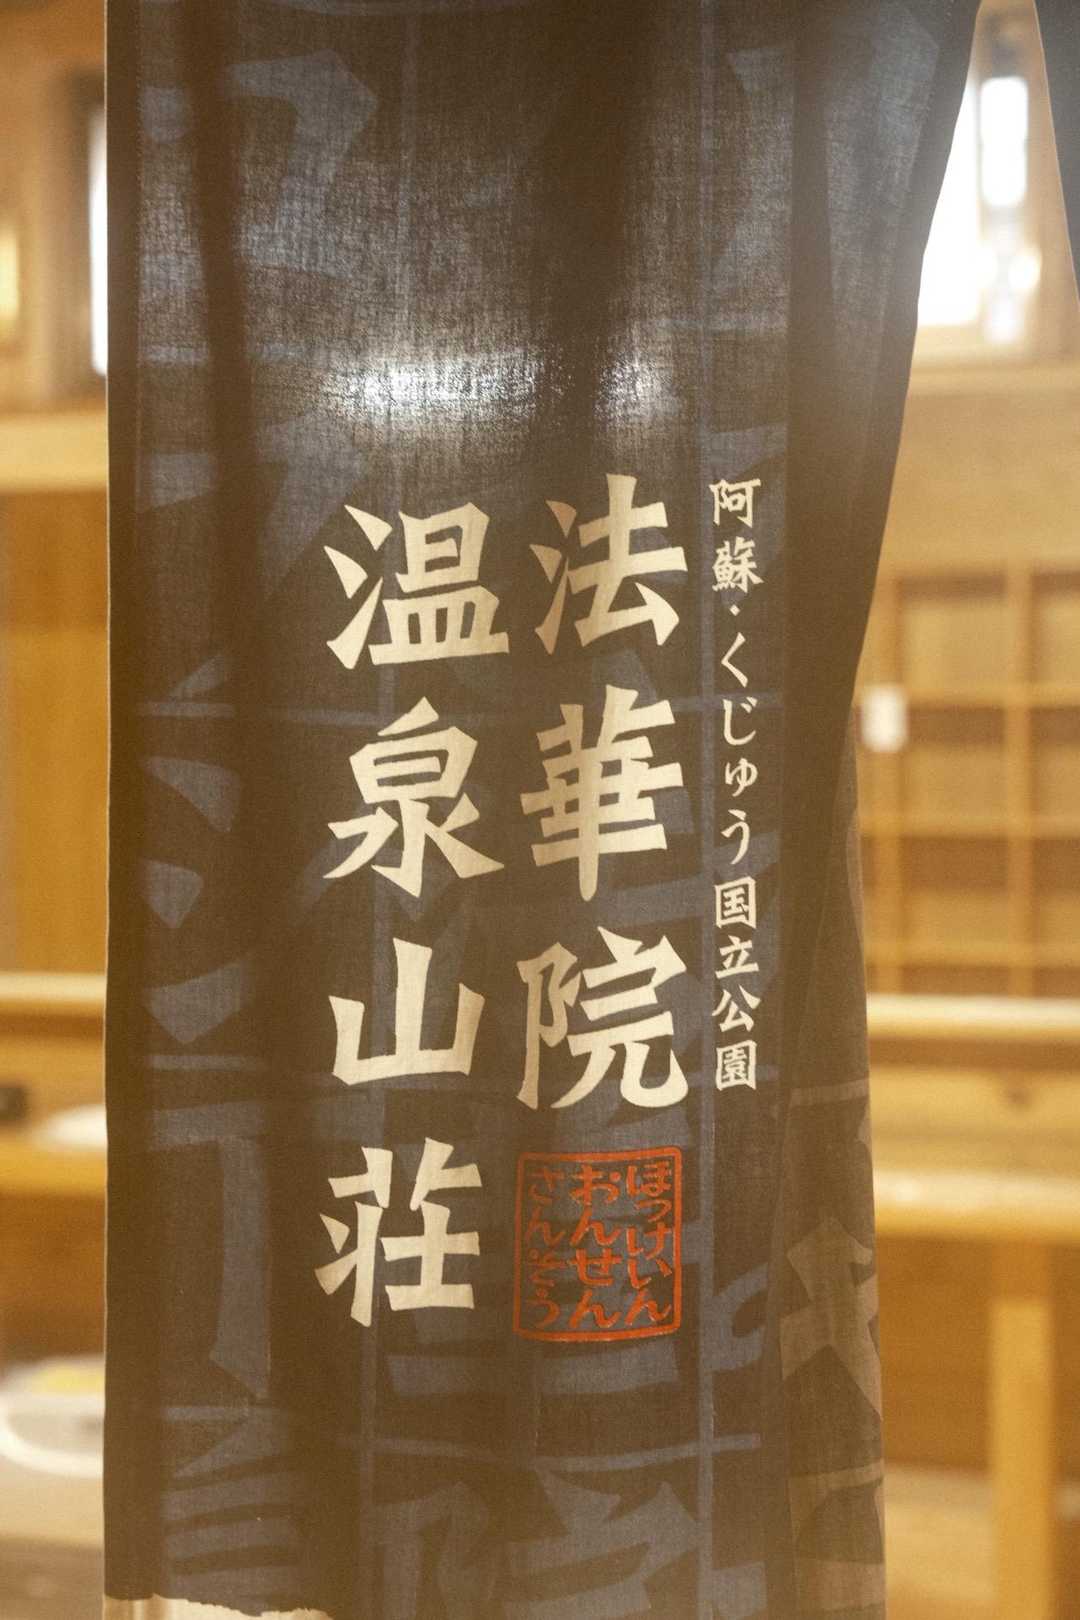 阿蘇・くじゅう国立公園
法華院
温泉山荘
ほっけいん
おんせん
さんそう